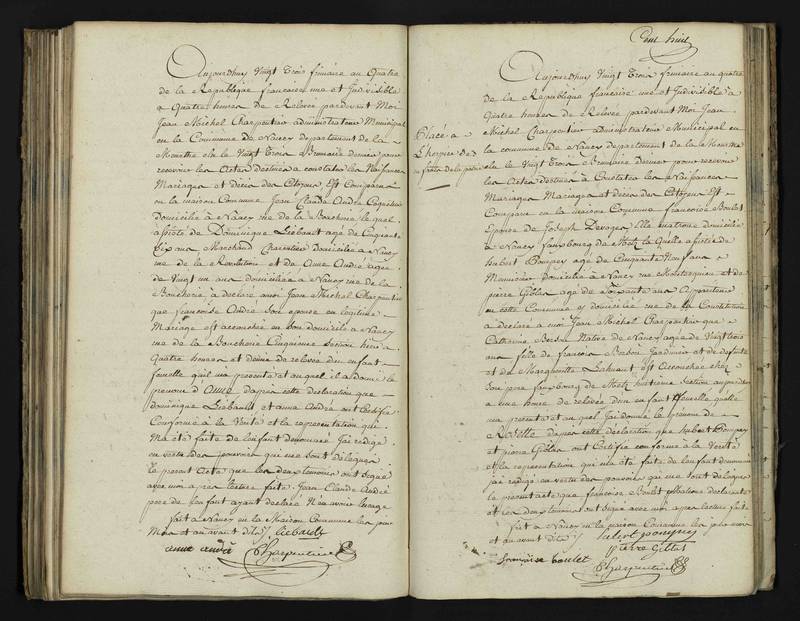 Aujourdhuy Vingt Trois frimaire au quatre
de la Republique francaise une et Indivisible
a Quatre heures de Relevee pardevant Moi
Jean Michel Charpentier administrateur Municipal
en la Commune de Nancy departement de la
Meurthe elu le Vingt Trois Brumaire dernier pour
recevoir les Actes destines a constater les Naissances
Mariages et deces des Citoyens Est Comparu
en la maison Commune Jean Claude André
domicilié a Nancy rue de la Boucherie le quel
assisté de Dominique Liebault agé de Cinquante
six ans Marchand Charcutier domicilié a Nancy
rue de la Revolution et de Anne André agée
de Vingt un ans domiciliée a Nancy rue de la
Boucherie a declaré a moi Jean Michel Charpentier
que francoise André son epouse en legitime
Mariage est accouchée en son domicile a Nancy
rue de la Boucherie Cinquieme Section hier a
quatre heures et demie de relevée d'un enfant
femelle qu'il m'a presenté et auquel il a donné le
prenom d'Anne d'apres cette declaration que
dominique Liebault et anne André ont Certifié
Conforme a la Verité et la representation qui
M'a eté faite de l'enfant denommé J'ai redigé
en vertu des pouvoirs qui me sont delegués
le present Acte que les deux temoins ont signé
avec moi apres lecture faite Jean Claude André
pere de l'enfant ayant declaré N'en avoir l'usage
fait a Nancy en la Maison Commune les jour
Mois et an avant dits liebault
anne andré Charpentier
Placé a
L'hospice des
enfants de la patrie
Aujourdhuy Vingt Trois frimaire au quatre
de la Republique francaise une et Indivisible a
Quatre heures de Relevée pardevant Moi Jean
Michel Charpentier administrateur Municipal en
la commune de Nancy departement de la Meurthe
elu le Vingt Trois Brumaire Dernier pour recevoir
les Actes destinés a Constater les Naissances
Mariages et deces des Citoyens Est
Comparu en la maison Commune francoise Boulet
Epouse de Joseph Matrone domiciliée
a Nancy faux bourg de Metz la Quelle assistée de
hubert Pompey agé de Cinquante Neuf ans
domicilié a Nancy rue et de
pierre agé de Soixante ans
en cette Commune y domicilié rue de la Constitution
a declaré a moi Jean Michel Charpentier que
Catherine Native de Nancy agée de Vingt trois
ans fille de francois Jardinier et de defunte
Marguerite est accouchée chez
son pere faux bourg de Metz huitieme Section aujourdhui
a une heure de relevée d'un enfant femelle quelle
m'a presenté et au quel J'ai donné le prenom de
d'apres cette declaration que hubert Pompey
et pierre ont Certifié conforme a la Verité
et la representation qui m'a eté faite de l'enfant denommé
j'ai redigé en vertu des pouvoirs qui me sont delegués
le present acte que francoise Boulet Matrone declarante
et les deux temoins ont signé avec moi apres lecture faite
fait a Nancy en la maison Commune les jour mois
et an avant dits hubert pompey
pierre
françoise boulet
Charpentier